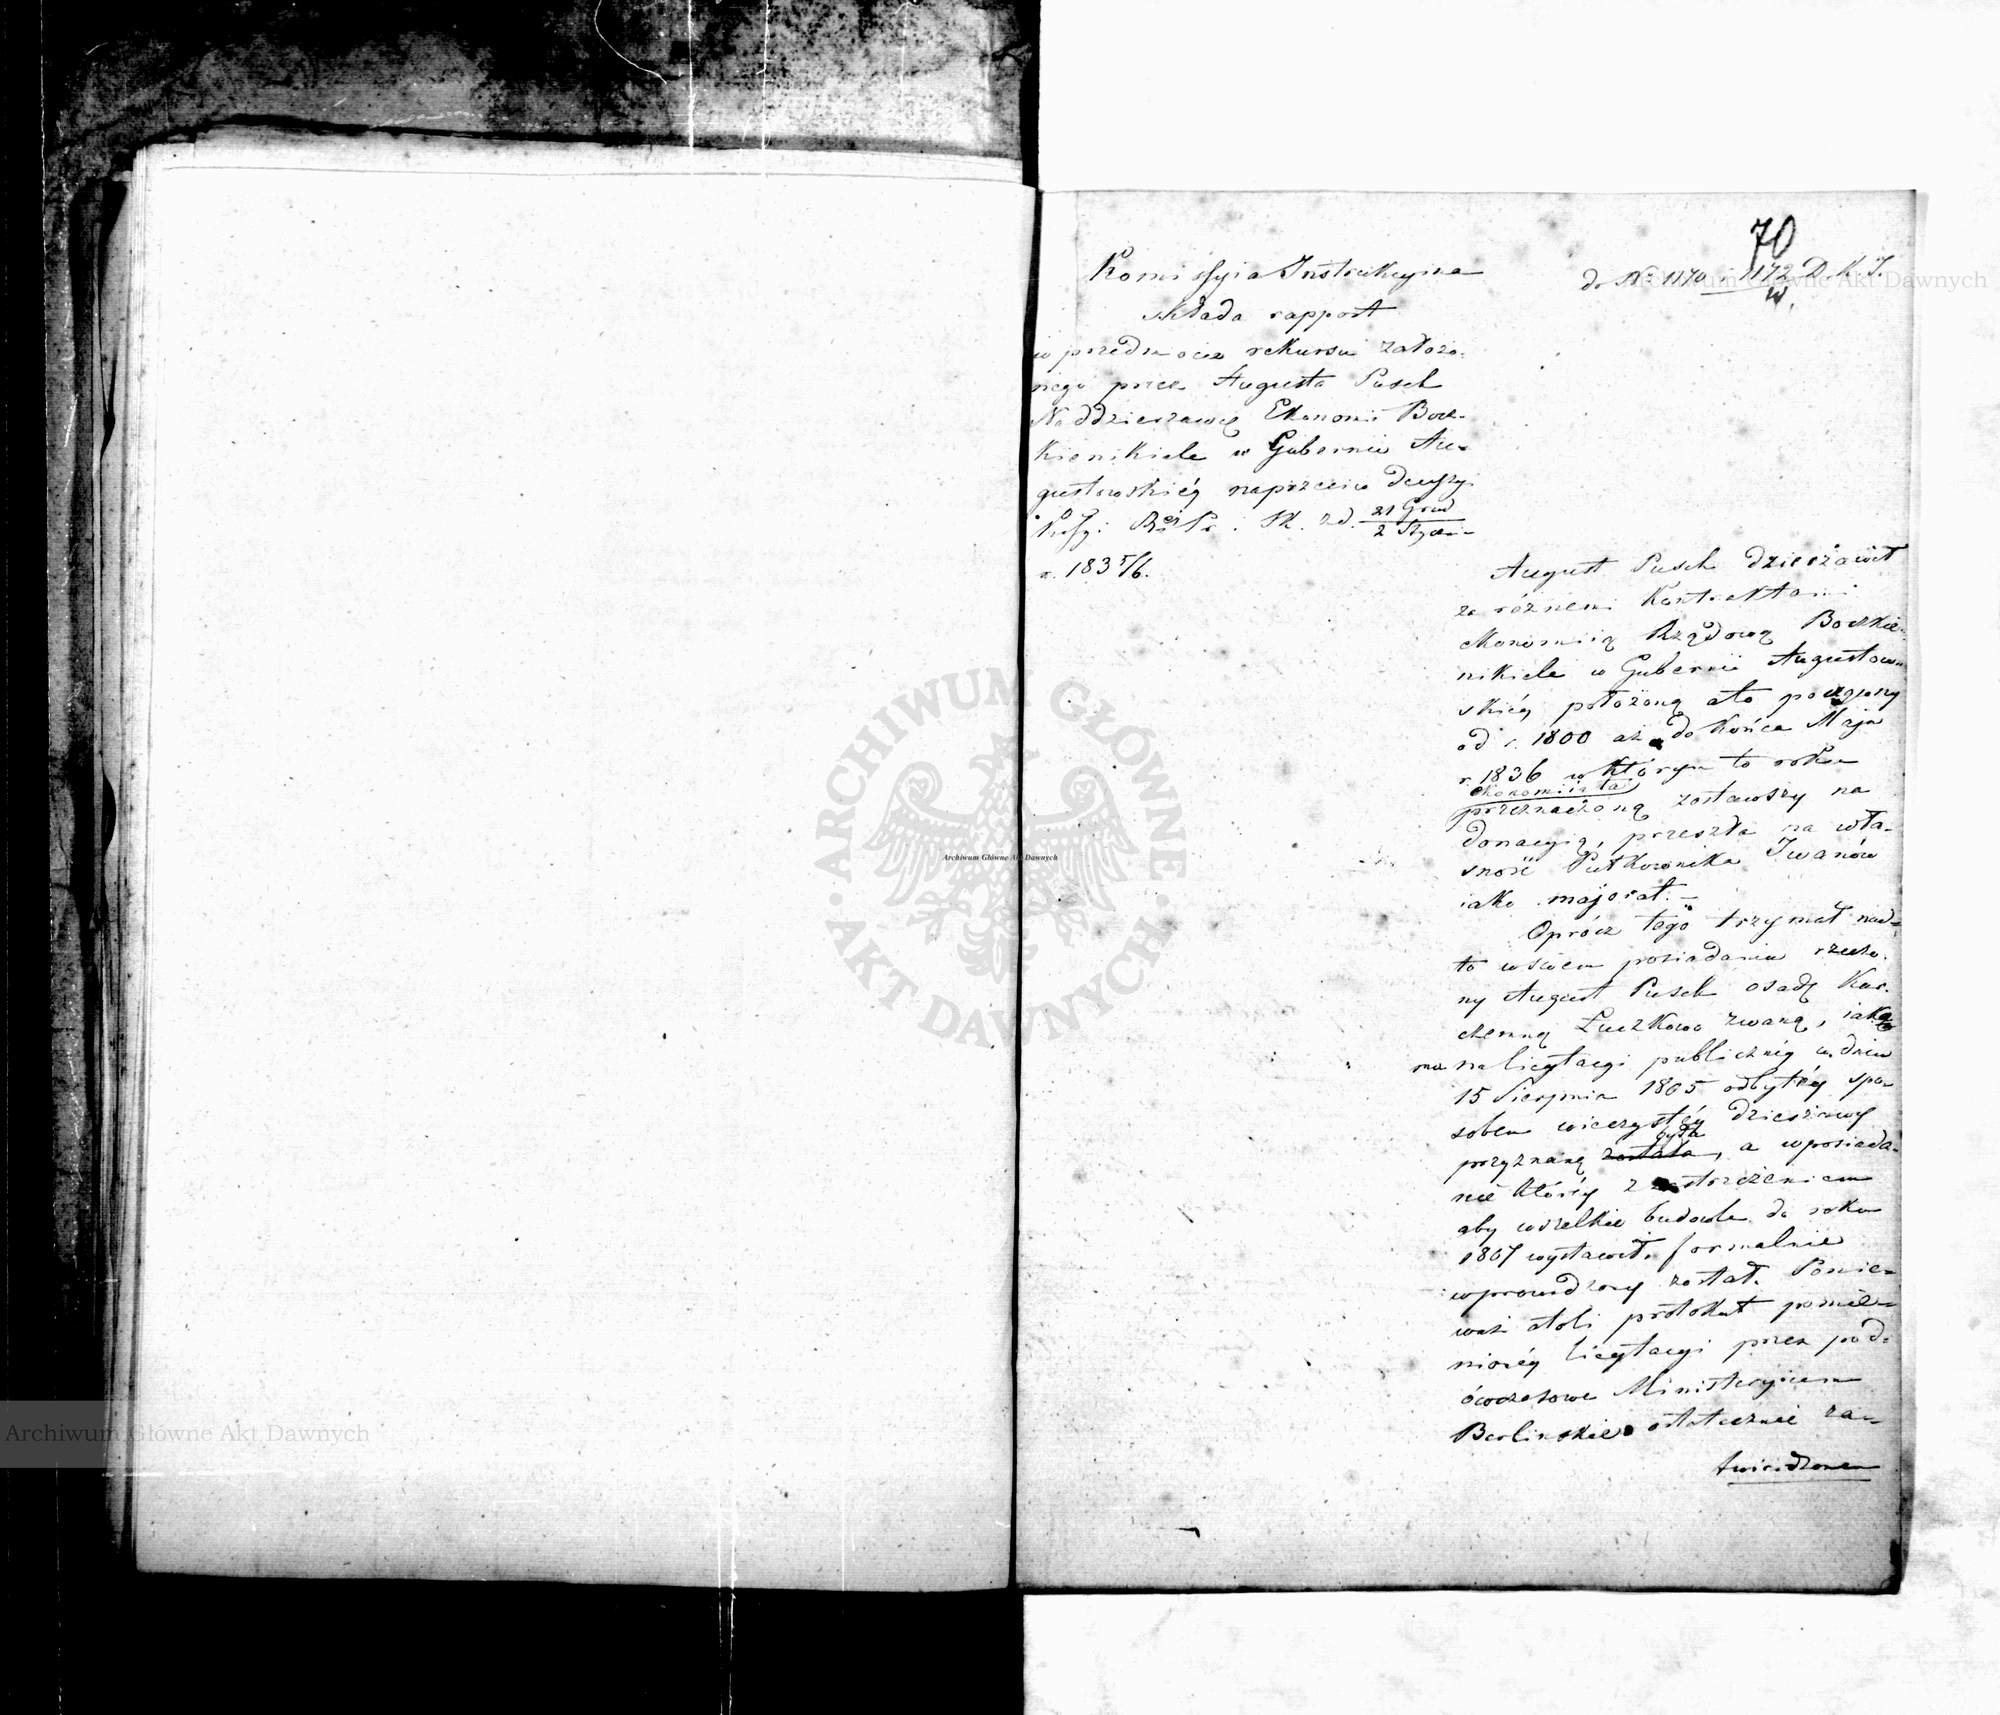 70
do No 1170 i 1172 D. K. I.
w.
Komissyia Instrukcyina
składa rapport
w przedmiocie rekursu założo-
nego przez Augusta Pusch
Naddzierżawcę Ekonomii Bocz-
kienikiele w Gubernii Au-
gustowskiéy naprzeciw decyzyi
21 Grud
2 Stycz
r. 1835/6.
August Pusch dzierżawił
za różnemi Kontraktami
ekonomiią Rządową Boczkie-
nikiele w Gubernii Augustow-
skiéy położoną a to począwszy
od r. 1800 aż do końca Maja
r. 1836 w którym to roku
ekonomiia ta
przeznaczoną zostawszy na
donacyią, przeszła na wła-
sność Pułkownika Iwanów
iako majorat.
Oprócz tego trzymał nad-
to w swem posiadaniu rzeczo-
ny August Pusch osadę Kar-
czemną Łuczkowo zwaną, iako
na licytacyi publicznéy w dniu
15 Sierpnia 1805 odbytéy spo-
sobem wieczystéy dzierżawy
była
przyznaną została, a w posiada-
nie któréy z zastrzeżeniem
aby wszelkie budowle do roku
1807 wystawił, formalnie
wprowadzony został. Ponie-
waż atoli protokuł pomie-
nionéy licytacyi przez pod-
ówczesowe Ministeryium
Berlinskie ostatecznie za-
twierdzonem
Archiwum Główne Akt Dawnych
ARCHIWUM GŁÓWNE
AKT DAWNYCH
Archiwum Główne Akt Dawnych
Archiwum Główne Akt Dawnych